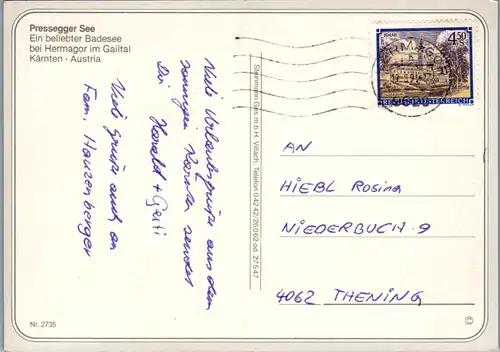 Pressegger See
Ein beliebter Badesee
bei Hermagor im Gailtal
Kärnten · Austria
Viele Urlaubsgrüße aus dem
sonnigen Kärnten sendet
Dir Harald + Gerti
Viele Grüße auch an
Fam. Hauzenberger
Steinmann Ges.m.b.H. Villach, Telefon 04242/26062 od. 27547
4.50
REPUBLIK ÖSTERREICH
AN
HIEBL Rosina
NIEDERBUCH 9
4062 THENING
Nr. 2735
©